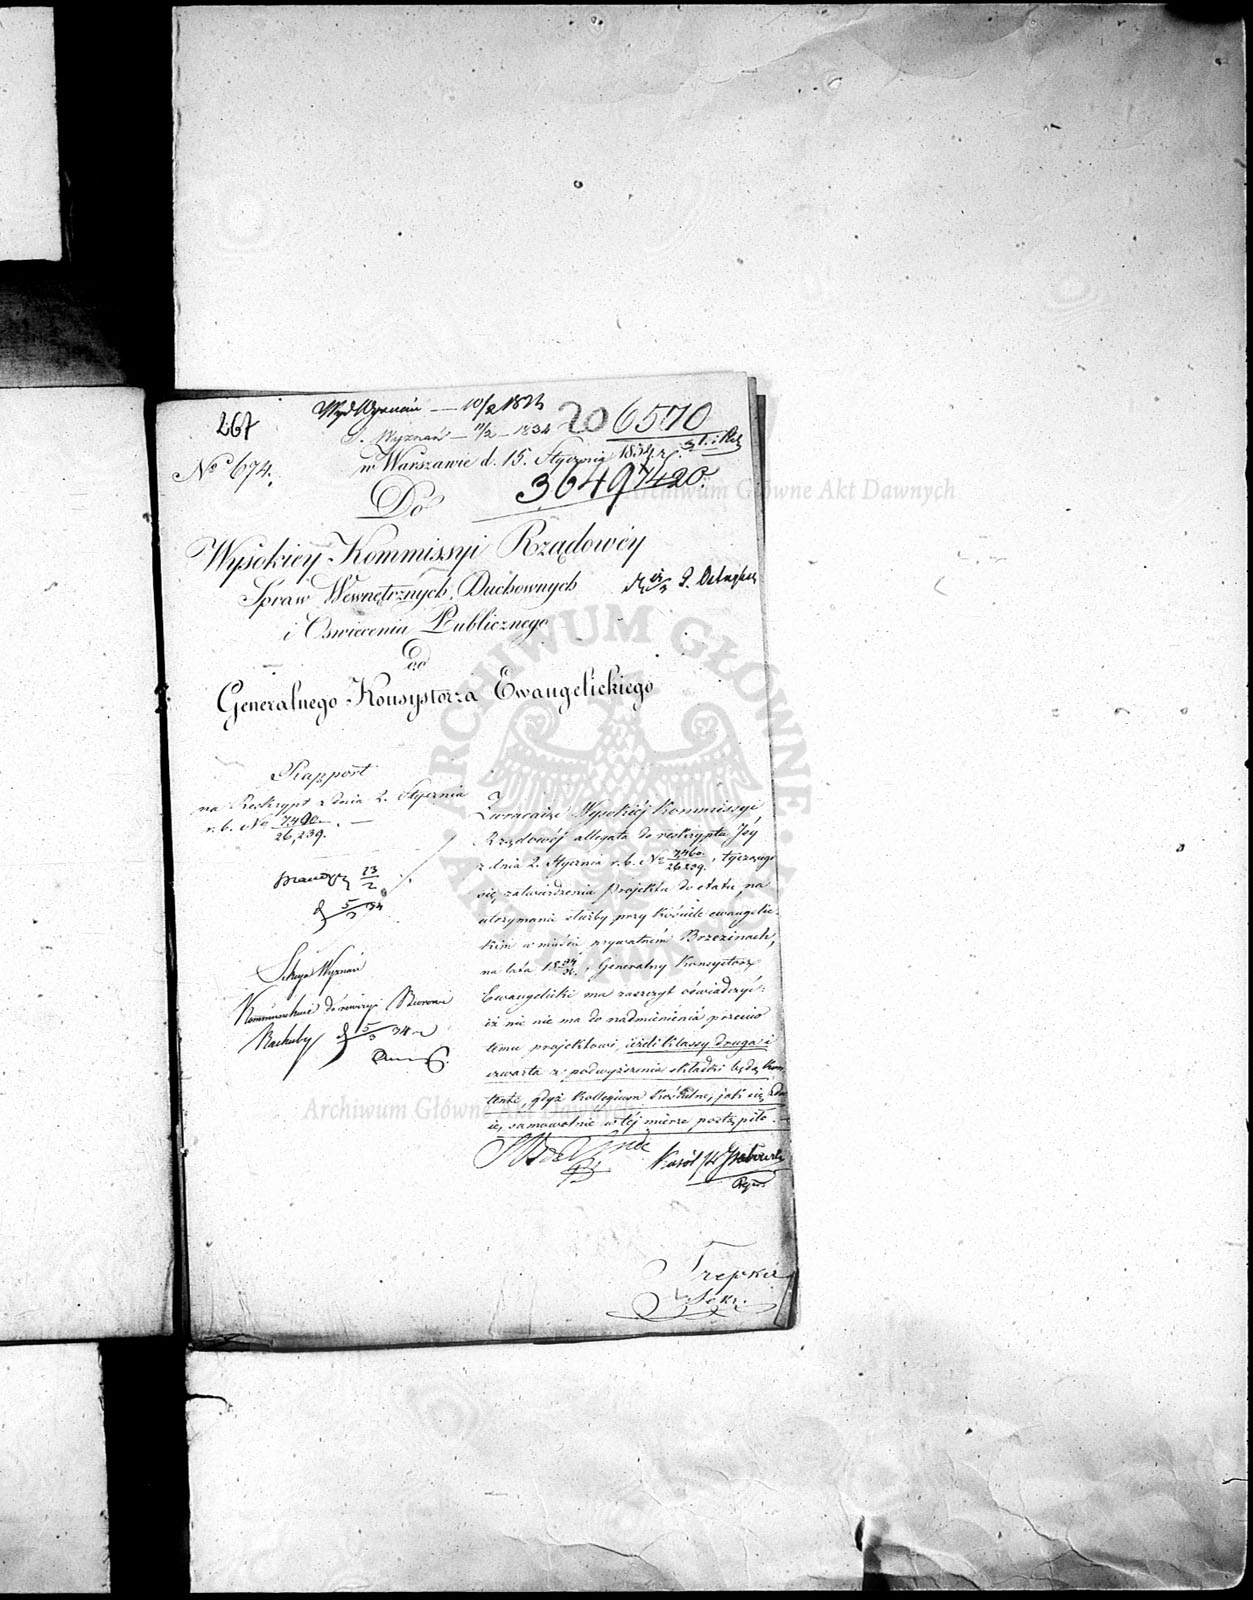 267
Wyd Wyznań — 10/2 1834
S. Wyznań — 11/2 — 1834
20 6570
No 674.
w Warszawie d. 15. Stycznia 1834 r.
3649 7420.
Do
Wysokiey Kommissyi Rządowéy
Spraw Wewnętrznych, Duchownych
i Oswiecenia Publicznego
od
Generalnego Konsystorza Ewangelickiego
Rapport
na Reskrypt z dnia 2. Stycznia
r. b. No 7490. —
26,239.
23/2
5/3 34
Sekcya Wyznań
do rewizyi Biorowi
Rachuby 5/3 34
Zwracaiąc Wysokiéj Kommissyi
Rządowéj allegata do reskryptu Jey
z dnia 2. Stycznia r. b. No 7460./26239., tyczącego
się zatwierdzenia Projektu do etatu, na
utrzymanie służby przy Kościele ewangelic-
kim w mieście prywatném Brzezinach,
na lata 1834/36., Generalny Konsystorz
Ewangelicki ma zaszczyt oświadczyć:
iż nic nie ma do nadmienienia przeciw
temu projektowi, ieżeli klassy druga i
czwarta z podwyższenia składki będą kon-
tente, gdyż Kollegium Kościelne, jak się zda-
ie, samowolnie w téj mierze postąpiło. —
Trepka
Sekr.
Archiwum Główne Akt Dawnych
ARCHIWUM GŁÓWNE AKT DAWNYCH
Archiwum Główne Akt Dawnych